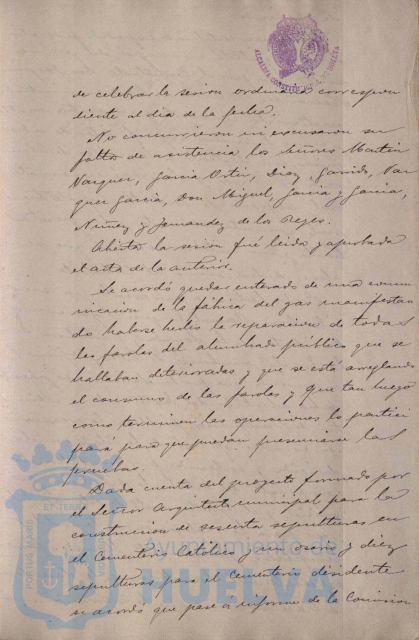 ALCALDIA CONSTITUCIONAL DE HUELVA
de celebrar la sesion ordinaria correspon
diente al dia de la fecha.
No concurrieron ni excusaron su
falta de asistencia los Señores Martin
Vazquez, Garcia Ortiz, Diaz, Garrido, Vaz
quez Garcia, Don Miguel, Garcia y Garcia,
Nuñez y Fernandez de los Reyes.
Abierta la sesion fué leida y aprobada
el acta de la anterior.
Se acordó quedar enterado de una comu
nicacion de la fábrica del gas manifestan
do haberse hecho la reparacion de todas
las farolas del alumbrado público que se
hallaban deterioradas y que se está arreglando
el consumo de las farolas y que tan luego
como terminen las operaciones lo partici
pará para que puedan presenciarse las
pruebas.
Dada cuenta del proyecto formado por
el Señor Arquitecto municipal para la
construccion de sesenta sepulturas en
el Cementerio Catolico y un osario y diez
sepulturas para el cementerio disidente
se acordó que pase a informe de la Comision
PORTUS MARIS
ET TERRAE
Ayuntamiento de
HUELVA